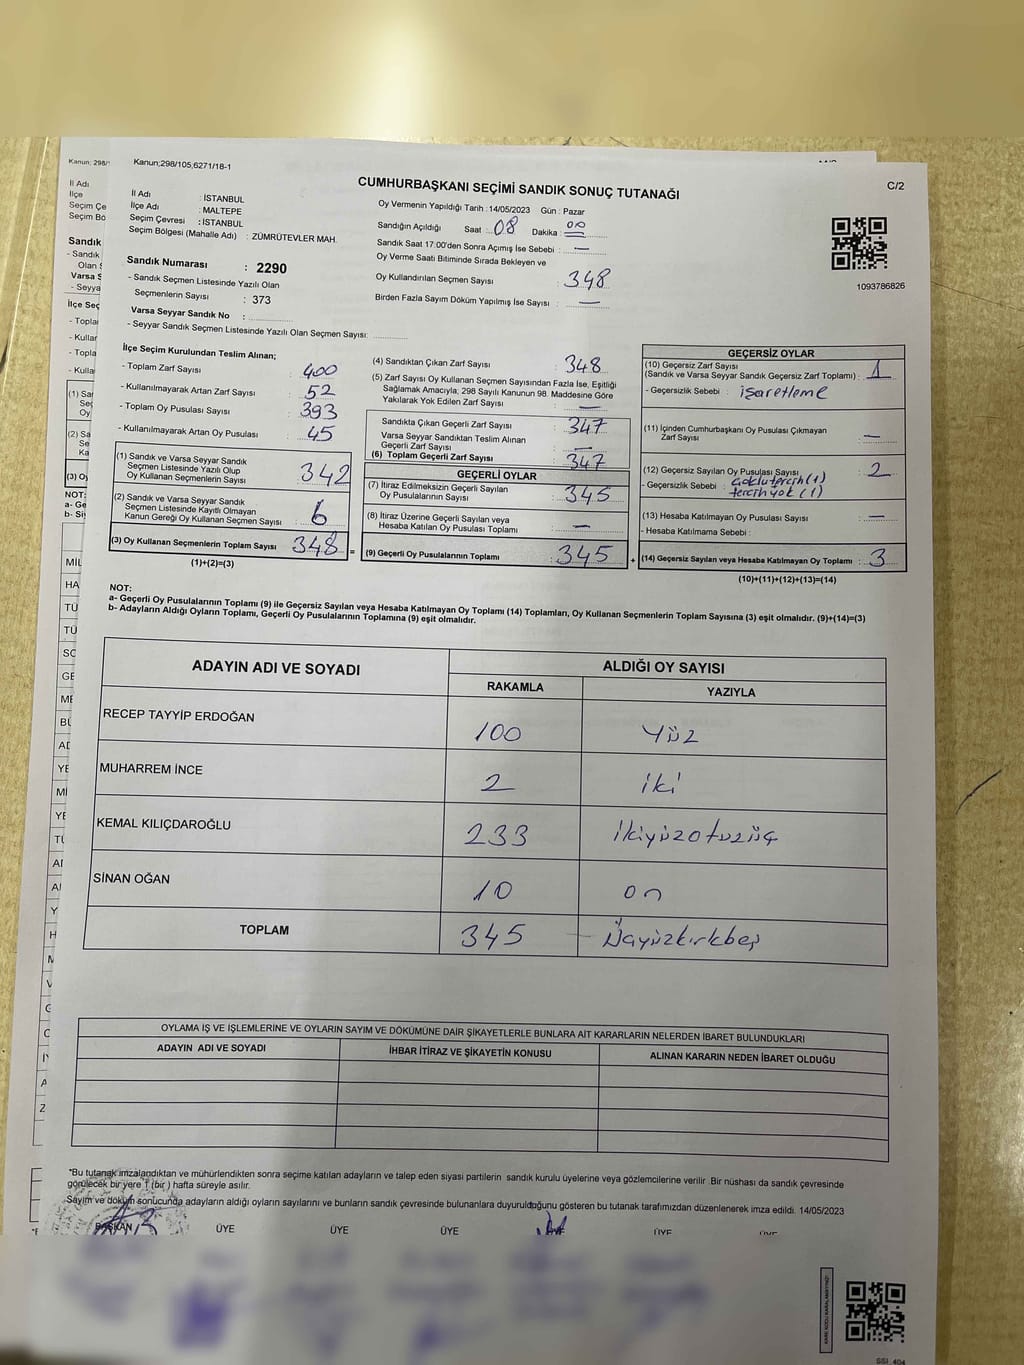 Kanun; 298/
Kanun;298/105,6271/18-1
CUMHURBAŞKANI SEÇİMİ SANDIK SONUÇ TUTANAĞI
C/2
İl Adı : İSTANBUL
İlçe Adı : MALTEPE
Seçim Çevresi : İSTANBUL
Seçim Bölgesi (Mahalle Adı) : ZÜMRÜTEVLER MAH.
Sandık Numarası : 2290
- Sandık Seçmen Listesinde Yazılı Olan
Seçmenlerin Sayısı : 373
Varsa Seyyar Sandık No :
- Seyyar Sandık Seçmen Listesinde Yazılı Olan Seçmen Sayısı:
Oy Vermenin Yapıldığı Tarih :14/05/2023 Gün : Pazar
Sandığın Açıldığı Saat : 08 Dakika : 00
Sandık Saat 17:00'den Sonra Açımış İse Sebebi : —
Oy Verme Saati Bitiminde Sırada Bekleyen ve
Oy Kullandırılan Seçmen Sayısı : 348
Birden Fazla Sayım Döküm Yapılmış İse Sayısı : —
1093786826
İlçe Seçim Kurulundan Teslim Alınan;
- Toplam Zarf Sayısı : 400
- Kullanılmayarak Artan Zarf Sayısı : 52
- Toplam Oy Pusulası Sayısı : 393
- Kullanılmayarak Artan Oy Pusulası : 45
(1) Sandık ve Varsa Seyyar Sandık
Seçmen Listesinde Yazılı Olup
Oy Kullanan Seçmenlerin Sayısı : 342
(2) Sandık ve Varsa Seyyar Sandık
Seçmen Listesinde Kayıtlı Olmayan
Kanun Gereği Oy Kullanan Seçmen Sayısı : 6
(3) Oy Kullanan Seçmenlerin Toplam Sayısı : 348 =
(1)+(2)=(3)
(4) Sandıktan Çıkan Zarf Sayısı : 348
(5) Zarf Sayısı Oy Kullanan Seçmen Sayısından Fazla İse, Eşitliği
Sağlamak Amacıyla; 298 Sayılı Kanunun 98. Maddesine Göre
Yakılarak Yok Edilen Zarf Sayısı : —
Sandıkta Çıkan Geçerli Zarf Sayısı : 347
Varsa Seyyar Sandıktan Teslim Alınan
Geçerli Zarf Sayısı : —
(6) Toplam Geçerli Zarf Sayısı : 347
GEÇERLİ OYLAR
(7) İtiraz Edilmeksizin Geçerli Sayılan
Oy Pusulalarının Sayısı : 345
(8) İtiraz Üzerine Geçerli Sayılan veya
Hesaba Katılan Oy Pusulası Toplamı : —
(9) Geçerli Oy Pusulalarının Toplamı : 345 +
GEÇERSİZ OYLAR
(10) Geçersiz Zarf Sayısı
(Sandık ve Varsa Seyyar Sandık Geçersiz Zarf Toplamı) : 1
- Geçersizlik Sebebi : işaretleme
(11) İçinden Cumhurbaşkanı Oy Pusulası Çıkmayan
Zarf Sayısı : —
(12) Geçersiz Sayılan Oy Pusulası Sayısı : 2
- Geçersizlik Sebebi : çoklu tercih (1)
tercih yok (1)
(13) Hesaba Katılmayan Oy Pusulası Sayısı : —
- Hesaba Katılmama Sebebi :
(14) Geçersiz Sayılan veya Hesaba Katılmayan Oy Toplamı : 3
(10)+(11)+(12)+(13)=(14)
NOT:
a- Geçerli Oy Pusulalarının Toplamı (9) ile Geçersiz Sayılan veya Hesaba Katılmayan Oy Toplamı (14) Toplamları, Oy Kullanan Seçmenlerin Toplam Sayısına (3) eşit olmalıdır. (9)+(14)=(3)
b- Adayların Aldığı Oyların Toplamı, Geçerli Oy Pusulalarının Toplamına (9) eşit olmalıdır.
ADAYIN ADI VE SOYADI ALDIĞI OY SAYISI
RAKAMLA YAZIYLA
RECEP TAYYİP ERDOĞAN 100 Yüz
MUHARREM İNCE 2 iki
KEMAL KILIÇDAROĞLU 233 ikiyüzotuzüç
SİNAN OĞAN 10 on
TOPLAM 345 Üçyüzkırkbeş
OYLAMA İŞ VE İŞLEMLERİNE VE OYLARIN SAYIM VE DÖKÜMÜNE DAİR ŞİKAYETLERLE BUNLARA AİT KARARLARIN NELERDEN İBARET BULUNDUKLARI
ADAYIN ADI VE SOYADI İHBAR İTİRAZ VE ŞİKAYETİN KONUSU ALINAN KARARIN NEDEN İBARET OLDUĞU
*Bu tutanak imzalandıktan ve mühürlendikten sonra seçime katılan adayların ve talep eden siyasi partilerin sandık kurulu üyelerine veya gözlemcilerine verilir .Bir nüshası da sandık çevresinde
görülecek bir yere 1 (bir ) hafta süreyle asılır.
Sayım ve döküm sonucunda adayların aldığı oyların sayılarını ve bunların sandık çevresinde bulunanlara duyurulduğunu gösteren bu tutanak tarafımızdan düzenlenerek imza edildi. 14/05/2023
BAŞKAN ÜYE ÜYE ÜYE ÜYE ÜYE ÜYE